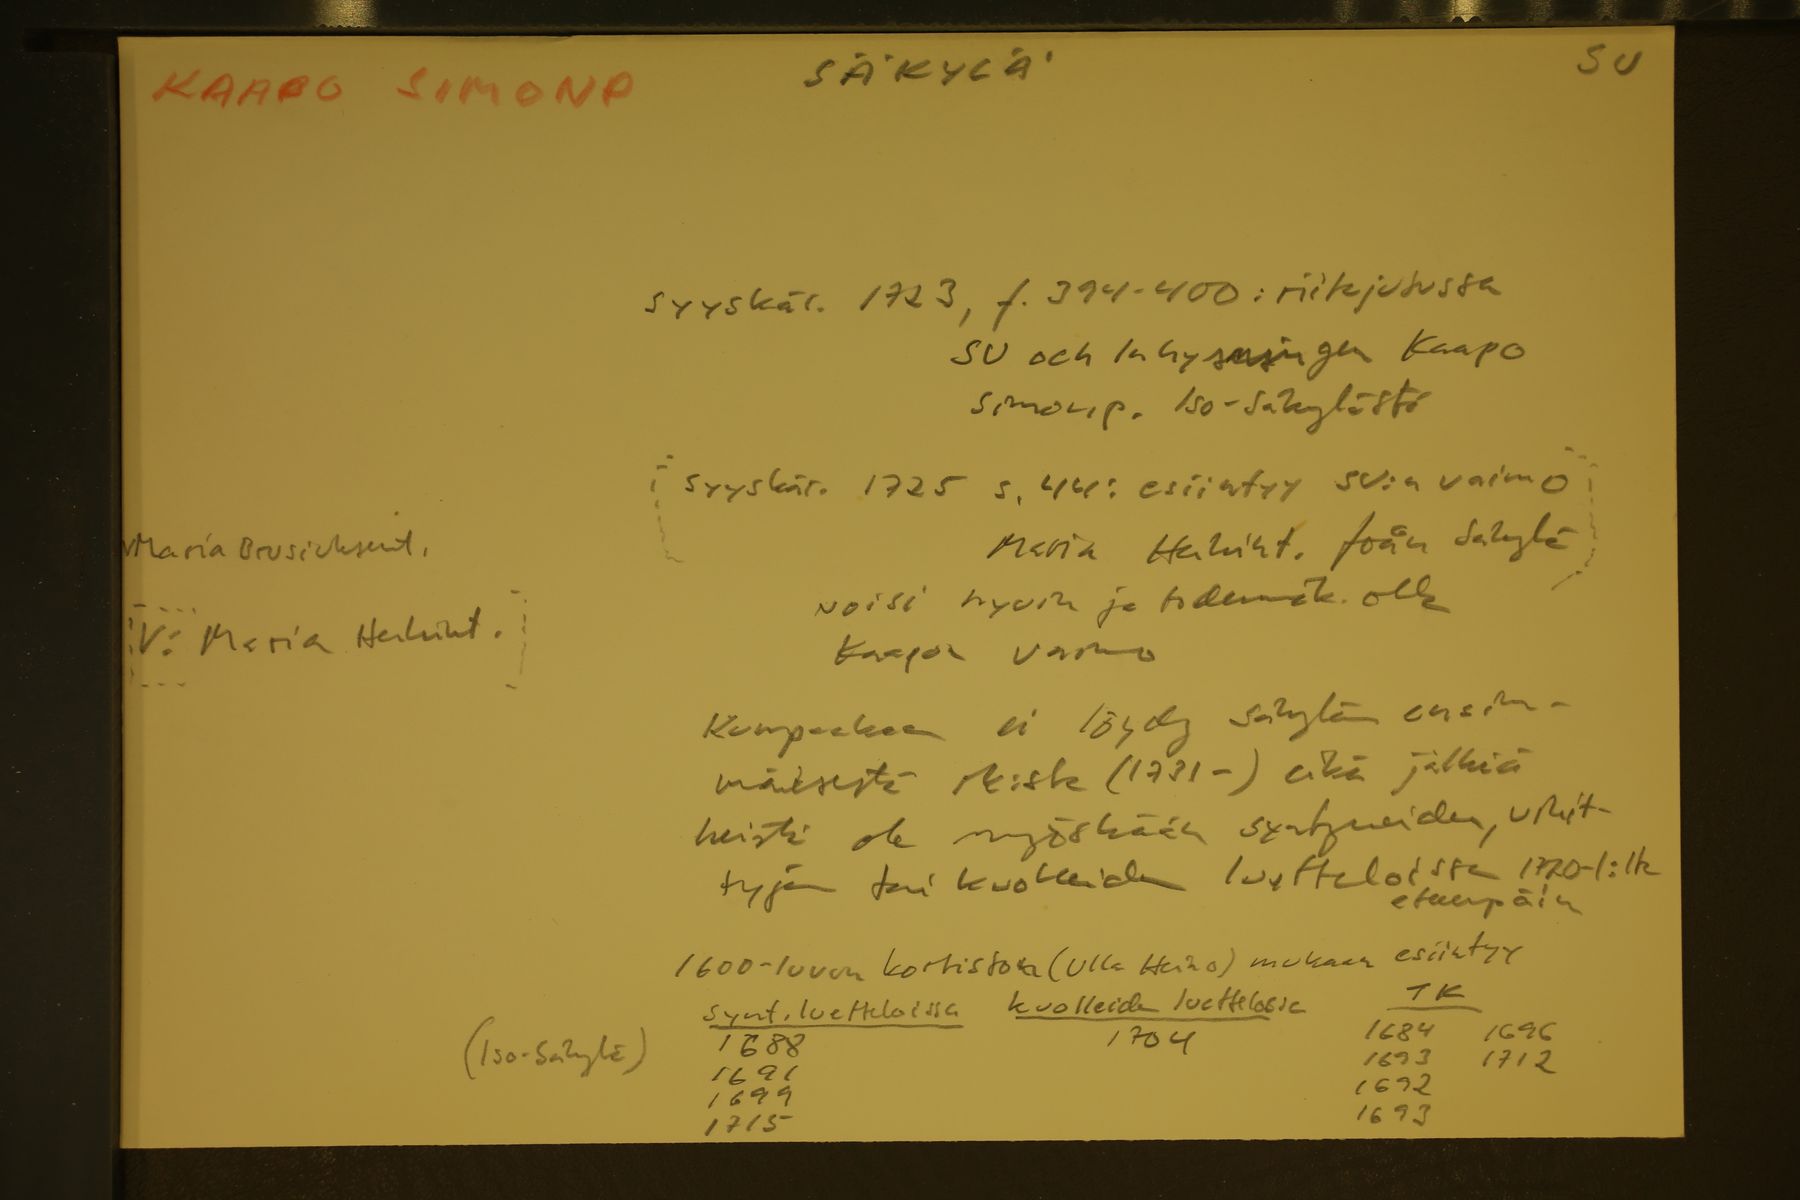 KAAPO SIMONP
SÄKYLÄ
SU
syyskär. 1723, f. 394-400: riitajutussa
SU och Inhysingen Kaapo
Simonp. Iso-Säkylästä
syyskär. 1725 s. 44: esiintyy SU:n vaimo
Maria Heikint. från Säkylä
Maria Brusiuksent.
voisi hyvin ja todennäk. olla
V: Maria Heikint.
Kaapon vaimo
Kumpaakaan ei löydy Säkylän ensim-
mäisestä rk:sta (1731-) eikä jälkiä
heistä ole myöskään syntyneiden, vihit-
tyjen tai kuolleiden luetteloissa 1720-l:lta
eteenpäin
1600-luvun kortiston (Ulla Heino) mukaan esiintyy
synt. luetteloissa kuolleiden luetteloissa TK
(Iso-Säkylä) 1688 1704 1684 1696
1691 1693 1712
1699 1692
1715 1693